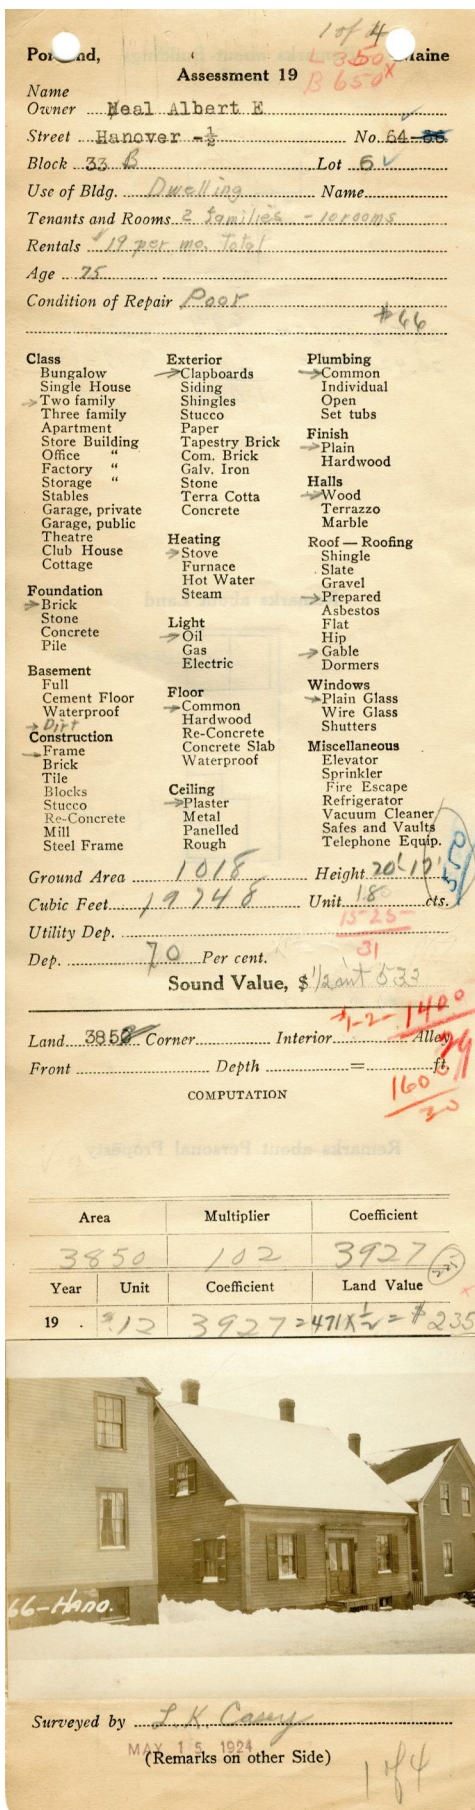 1 of 4
Portland, Maine
L 350
Assessment 19
B 650 x
Name
Owner Neal Albert E
Street Hanover - ½ No. 64-66
Block 33 B Lot 6
Use of Bldg. Dwelling Name
Tenants and Rooms 2 families - 10 rooms
Rentals $19 per mo. Total
Age 75
Condition of Repair Poor
$66
Class
Bungalow
Single House
Two family
Three family
Apartment
Store Building
Office "
Factory "
Storage "
Stables
Garage, private
Garage, public
Theatre
Club House
Cottage
Foundation
Brick
Stone
Concrete
Pile
Basement
Full
Cement Floor
Waterproof
Dirt
Construction
Frame
Brick
Tile
Blocks
Stucco
Re-Concrete
Mill
Steel Frame
Exterior
Clapboards
Siding
Shingles
Stucco
Paper
Tapestry Brick
Com. Brick
Galv. Iron
Stone
Terra Cotta
Concrete
Heating
Stove
Furnace
Hot Water
Steam
Light
Oil
Gas
Electric
Floor
Common
Hardwood
Re-Concrete
Concrete Slab
Waterproof
Ceiling
Plaster
Metal
Panelled
Rough
Plumbing
Common
Individual
Open
Set tubs
Finish
Plain
Hardwood
Halls
Wood
Terrazzo
Marble
Roof — Roofing
Shingle
Slate
Gravel
Prepared
Asbestos
Flat
Hip
Gable
Dormers
Windows
Plain Glass
Wire Glass
Shutters
Miscellaneous
Elevator
Sprinkler
Fire Escape
Refrigerator
Vacuum Cleaner
Safes and Vaults
Telephone Equip.
550
Ground Area 1018 Height 20'-19'
Cubic Feet 19748 Unit 18 cts.
Utility Dep. 15-25-
31
Dep. 70 Per cent.
Sound Value, $ ½ int 533
1400
Land 3850 Corner Interior Alley
29
Front Depth = ft.
1600
30
COMPUTATION
Area Multiplier Coefficient
3850 102 3927
225
Year Unit Coefficient Land Value
19 . $.12 3927 = 471 x ½ = $235
66-HANO.
Surveyed by L. K. Casey
MAY 15 1924
(Remarks on other Side)
1 of 4